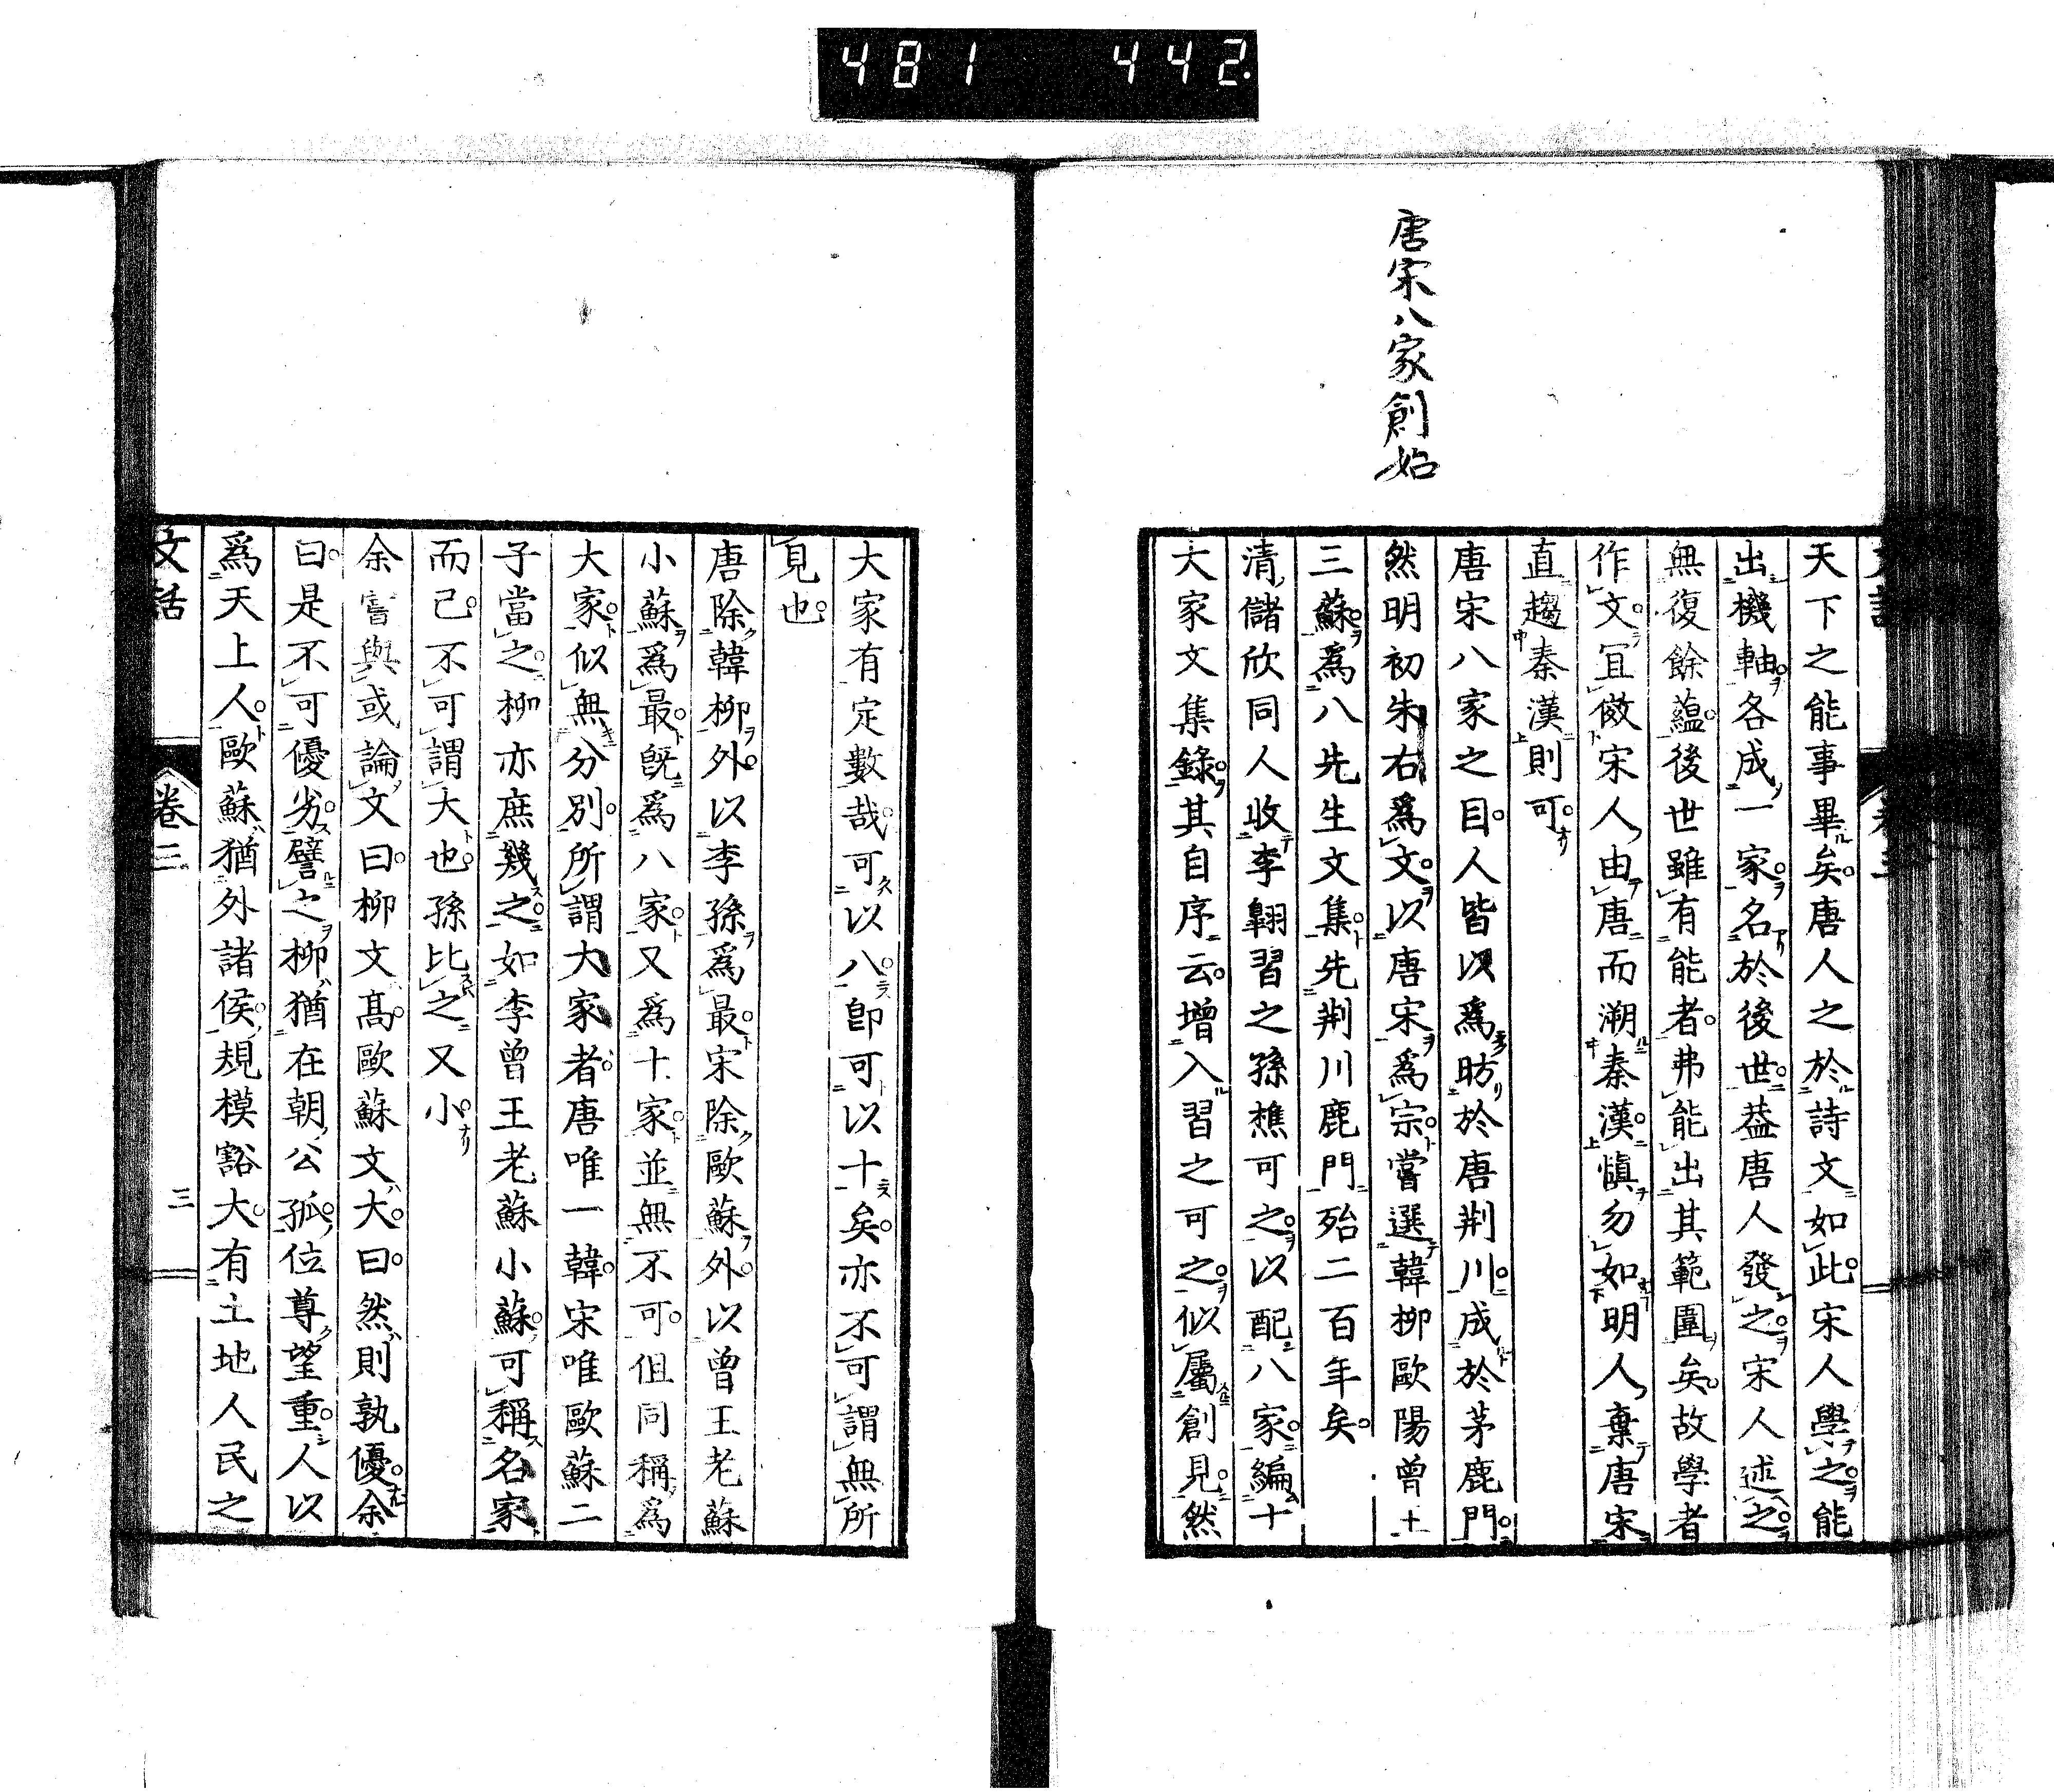 481 442
唐宋八家創始
天下之能事畢矣唐人之於詩文如此宋人學之能
出機軸各成一家名於後世葢唐人發之宋人述之
無復餘蘊後世雖有能者弗能出其範圍矣故學者
作文冝倣宋人由唐而溯秦漢愼勿如明人棄唐宋
直趨秦漢則可
唐宋八家之目人皆以爲昉於唐荆川成於茅鹿門
然明初朱右爲文以唐宋爲宗嘗選韓柳歐陽曾王
三蘇爲八先生文集先荆川鹿門殆二百年矣
清儲欣同人收李翺習之孫樵可之以配八家編十
大家文集錄其自序云增入習之可之似屬創見然
大家有定數哉可以八卽可以十矣亦不可謂無所
見也
唐除韓柳外以李孫爲最宋除歐蘇外以曾王老蘇
小蘇爲最旣爲八家又爲十家並無不可但同稱爲
大家似無分別所謂大家者唐唯一韓宋唯歐蘇二
子當之柳亦庶幾之如李曾王老蘇小蘇可稱名家
而已不可謂大也孫比之又小
余嘗與或論文曰柳文髙歐蘇文大曰然則孰優余
曰是不可優劣譬之柳猶在朝公孤位尊望重人以
爲天上人歐蘇猶外諸侯規模豁大有土地人民之
文話 卷三 三